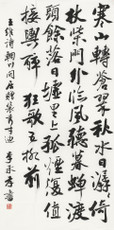 寒山轉蒼翠秋水日潺倚
杖柴門外臨風聽暮蟬渡
頭餘落日墟里上孤煙復值
接輿醉狂歌五柳前
王維詩輞川閒居贈裴秀才迪